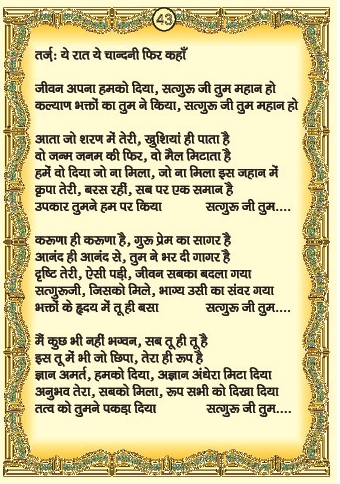 43
तर्ज़: ये रात ये चान्दनी फिर कहाँ
जीवन अपना हमको दिया, सत्गुरू जी तुम महान हो
कल्याण भक्तों का तुम ने किया, सत्गुरू जी तुम महान हो
आता जो शरण में तेरी, खुशियां ही पाता है
वो जन्म जनम की फिर, वो मैल मिटाता है
हमें वो दिया जो ना मिला, जो ना मिला इस जहान में
कृपा तेरी, बरस रहीं, सब पर एक समान है
उपकार तुमने हम पर किया सत्गुरू जी तुम....
करूणा ही करूणा है, गुरू प्रेम का सागर है
आनंद ही आनंद से, तुम ने भर दी गागर है
दृष्टि तेरी, ऐसी पड़ी, जीवन सबका बदला गया
सत्गुरूजी, जिसको मिले, भाग्य उसी का संवर गया
भक्तों के हृदय में तू ही बसा सत्गुरू जी तुम....
मैं कुछ भी नहीं भग्वन, सब तू ही तू है
इस तू में भी जो छिपा, तेरा ही रूप है
ज्ञान अमर्त, हमको दिया, अज्ञान अंधेरा मिटा दिया
अनुभव तेरा, सबको मिला, रूप सभी को दिखा दिया
तत्व को तुमने पकड़ा दिया सत्गुरू जी तुम....